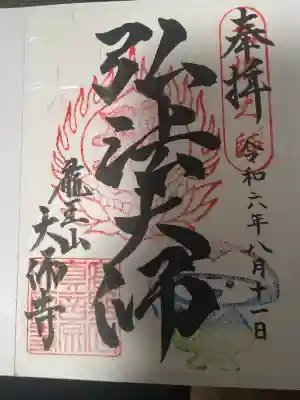 奉拝
令和六年八月十一日
弘法大師
龍王山
大師寺